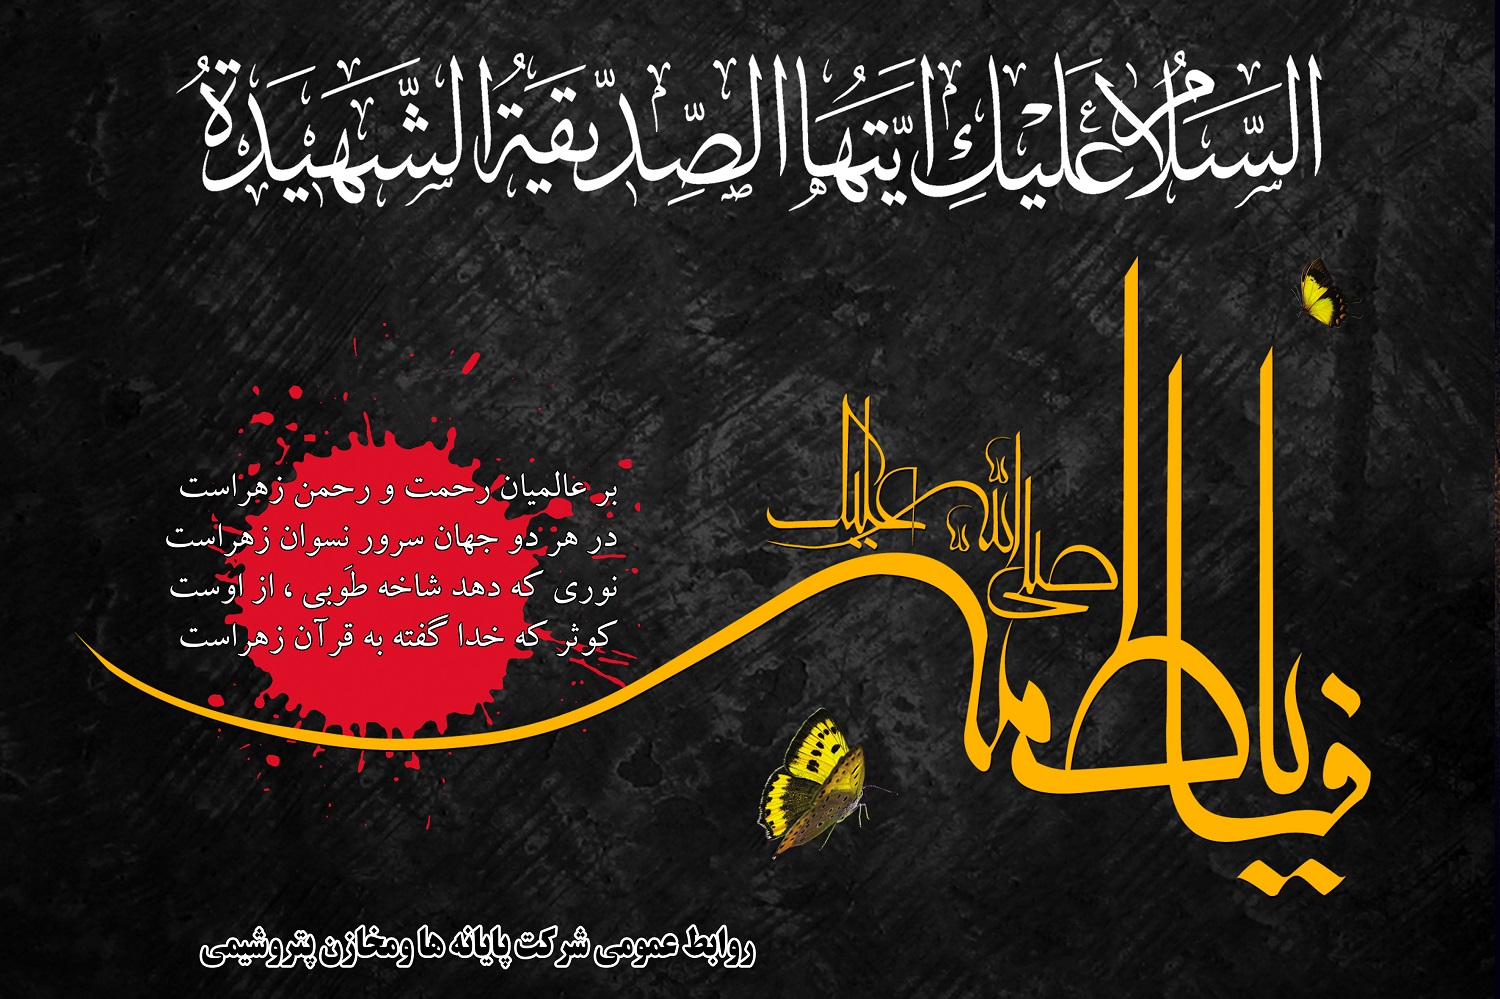 السَّلامُ عَلَيْكِ اَيَّتُهَا الصِّدّيقَةُ الشَّهيدَةُ
يا فاطمه
صلی الله علیک
بر عالمیان رحمت و رحمن زهراست
در هر دو جهان سرور نسوان زهراست
نوری که دهد شاخه طَوبی ، از اوست
کوثر که خدا گفته به قرآن زهراست
روابط عمومی شرکت پایانه ها ومخازن پتروشیمی